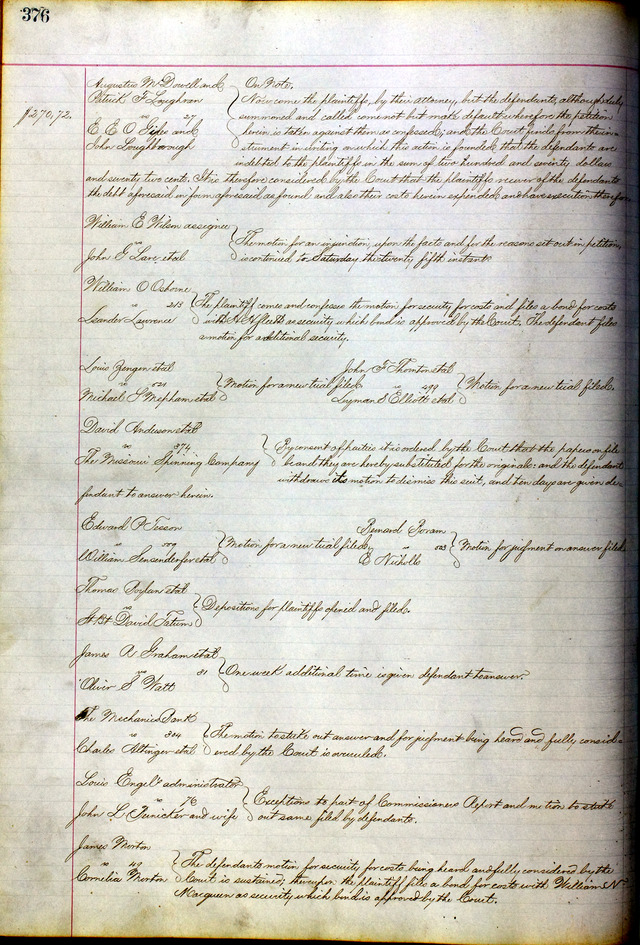 376
Augustus McDowell and } On Note.
Patrick F Loughran } Now come the plaintiffs, by their attorney, but the defendants, although duly
$270,72. vs 27 summoned and called come not but make default wherefore the petition
E E O and herein is taken against them as confessed; and the Court finds from the in-
John Loughborough strument in writing on which this action is founded, that the defendants are
indebted to the plaintiffs in the sum of two hundred and seventy dollars
and seventy two cents. It is therefore considered by the Court that the plaintiffs recover of the defendants
the debt aforesaid in form aforesaid as found and also their costs herein expended and have execution therefor
William E Wilson assignee
vs } The motion for an injunction, upon the facts and for the reasons set out in petition,
John G Lane et al is continued to Saturday the twenty fifth instant.
William O Osborne
vs 213 } The plaintiff comes and confesses the motion for security for costs and files a bond for costs
Leander Lawrence with as security which bond is approved by the Court. The defendant files
a motion for additional security.
Louis Zengen et al John F Thornton et al
vs 621 } Motion for a new trial filed. vs 499 } Motion for a new trial filed.
Michael S Mepham et al Lyman S Elliott et al
David Anderson et al
vs 374 } By consent of parties it is ordered by the Court that the papers on file
The Missouri Spinning Company be and they are hereby substituted for the originals: and the defendant
withdraws its motion to dismiss this suit, and ten days are given de-
fendant to answer herein.
Edward P Tesson Bernard Boram
vs } Motion for a new trial filed. vs 623 } Motion for judgment on answer filed.
William Sensenderfer et al E Nicholls
Thomas et al
vs } Depositions for plaintiffs opened and filed.
St Bt David Tatum
James A Graham et al
vs 81 } One week additional time is given defendant to answer.
Oliver S Watt
The Mechanics Bank
vs 304 } The motion to strike out answer and for judgment being heard and fully consid-
Charles et al ered by the Court is overruled.
Louis Engel's administrator
vs 76 } Exceptions to part of Commissioners Report and motion to strike
John L Junicker and wife out same filed by defendants.
James Morton
vs 49 } The defendants motion for security for costs being heard and fully considered by the
Cornelia Morton Court is sustained; thereupon the plaintiff files a bond for costs with William N
Macqueen as security which bond is approved by the Court.